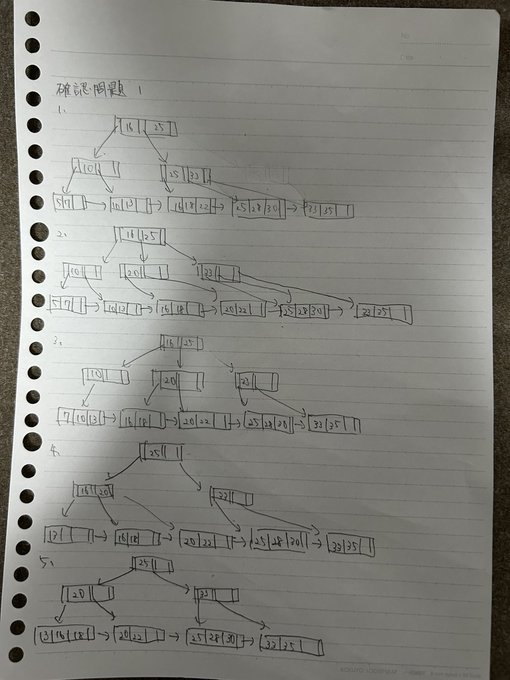 No.
Date
確認問題 1
1.
16 25
10 25 33
5 7 10 13 16 18 22 25 28 30 33 35
2.
16 25
10 20 33
5 7 10 13 16 18 20 22 25 28 30 33 35
3.
16 25
10 20 33
7 10 13 16 18 20 22 25 28 30 33 35
4.
25
16 20 33
13 16 18 20 22 25 28 30 33 35
5.
25
20 33
13 16 18 20 22 25 28 30 33 35